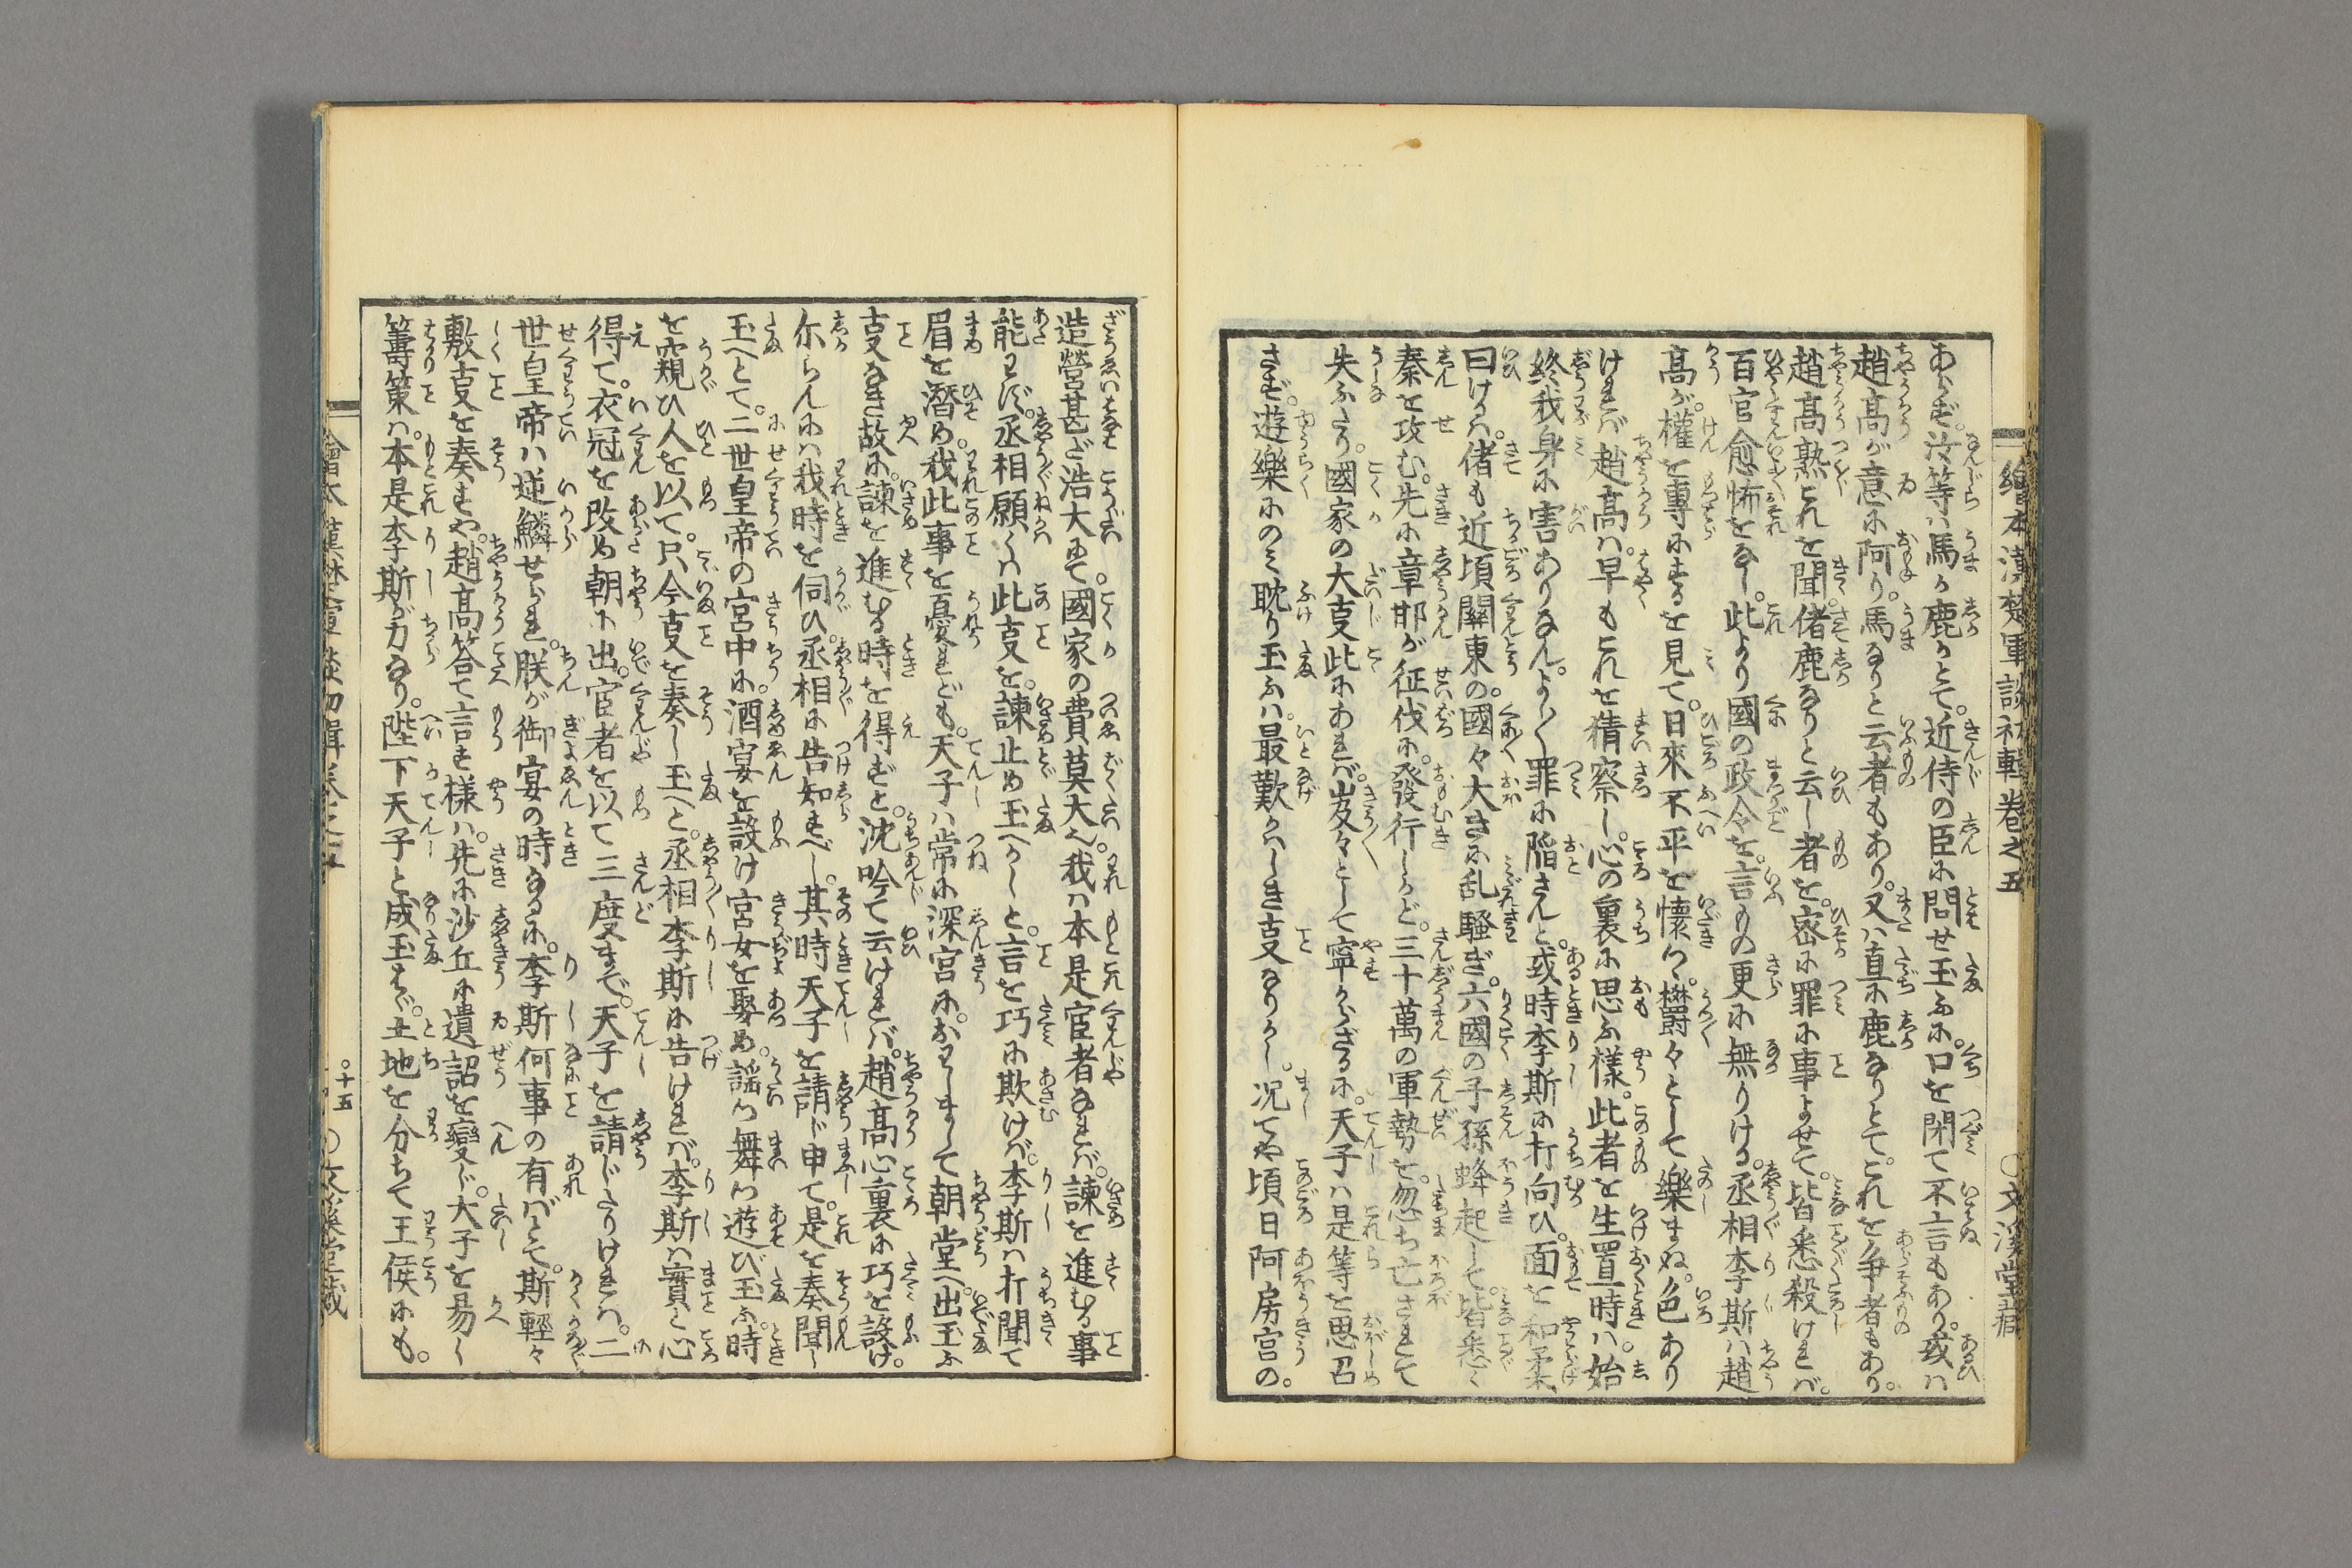 繪本漢楚軍談初輯卷之五 ○文溪堂藏
あらず。汝等ハ馬か鹿かとて。近侍の臣に問せ玉ふに。口を閉て不言もあり。或ハ
趙高が意に阿り。馬なりと云者もあり。又ハ直に鹿なりとて。これを争者もあり。
趙高熟これを聞。偖鹿なりと云し者を。密に罪に事よせて。皆悉殺けれバ。
百官愈怖をなし。此より國の政令を。言もの更に無りける。丞相李斯ハ趙
高が。權を專にするを見て。日來不平を懷き。欝々として樂まぬ。色あり
けれバ趙高ハ。早もこれを猜察し。心の裏に思ふ樣。此者を生置時ハ。始
終我身に害ありなん。よし〳〵罪に陥さんと。或時李斯に打向ひ。面を和柔、
曰けるハ。偖も近頃關東の。國々大きに乱騒ぎ。六國の子孫蜂起して。皆悉く
秦を攻む。先に章邯が征伐に。發行しかど。三十萬の軍勢を。忽ち亡されて
失ふたり。國家の大叓此にあれバ。岌々として寧からざるに。天子ハ是等を思召
さず。遊樂にのミ耽り玉ふハ。最歎かハしき叓なりかし。况てや頃日阿房宮の。
造營甚だ浩大にて。國家の費莫大也。我ハ本是宦者なれバ。諫を進むる事
能ハず。丞相願くハ此叓を。諫止め玉へかしと。言を巧に欺けバ。李斯ハ打聞て
眉を潛め。我此事を憂れども。天子ハ常に深宮に。おハしまして朝堂へ。出玉ふ
叓なき故に。諫を進むる時を得ずと。沈吟て云けれバ。趙高心裏に巧を設け。
尓らんにハ我時を伺ひ。丞相に告知すべし。其時天子を請じ申て。是を奏聞し
玉へとて。二世皇帝の宮中に。酒宴を設け宮女を聚め。謡ひ舞ひ遊び玉ふ。時
を窺ひ人を以て。只今叓を奏し玉へと。丞相李斯に告けれバ。李斯ハ實と心
得て。衣冠を改め朝に出。宦者を以て三度まで。天子を請じたりけれハ。二
世皇帝ハ逆鱗せられ。朕が御宴の時なるに。李斯何事の有バとて。斯輕々
敷叓を奏すや。趙高答て言す樣ハ。先に沙丘に遺詔を變じ。太子を易し
籌策ハ。本是李斯が力なり。陛下天子と成玉はゞ。土地を分ちて王侯にも。
繪本漢楚軍談初輯卷之五 ○十五 ○文溪堂藏